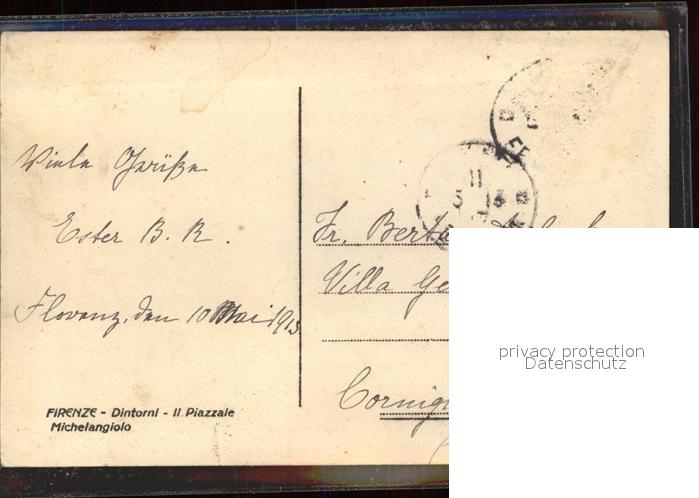 Viele Grüße
Ester B. R.
Florenz, den 10 Mai 1913.
FIRENZE - Dintorni - Il Piazzale
Michelangiolo
11
5 13
Fr. Berta
Villa
privacy protection
Datenschutz